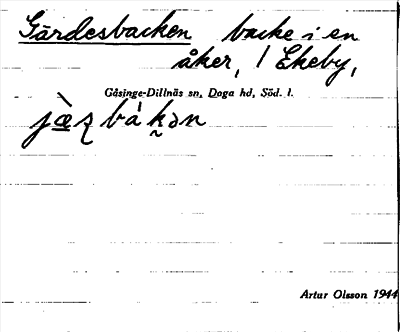 Gärdesbacken backe i en
åker, / Ekeby,
Gåsinge-Dillnäs sn, Doga hd, Söd. l.
jæ̀ʐ bàkən
Artur Olsson 1944